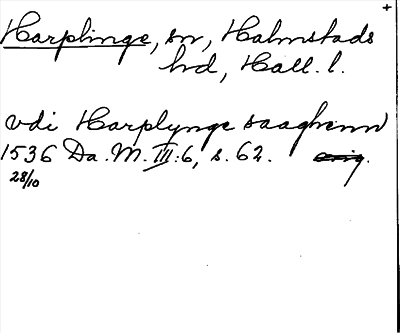 +
Harplinge, sn, Halmstads
hd, Hall. l.
vdi Harplynge saaghenn
1536 Da. M. III:6, s. 62. orig.
28/10